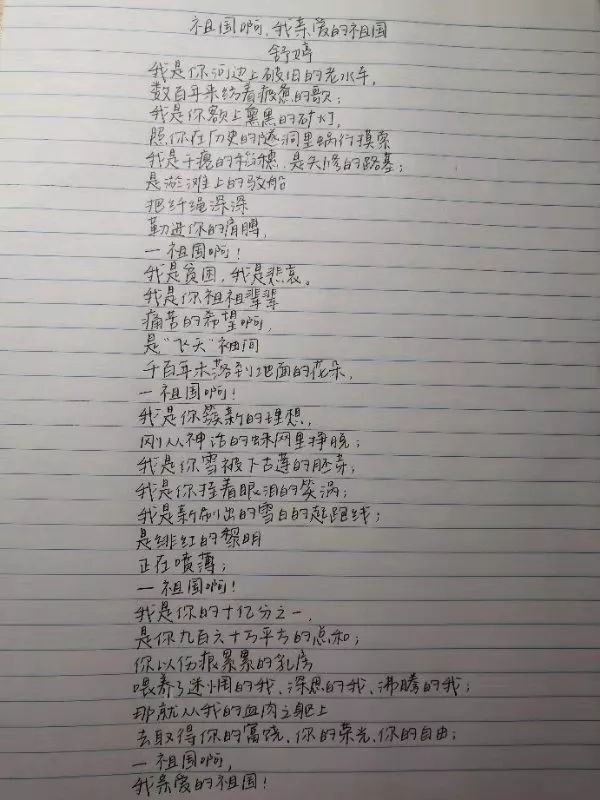 祖国啊,我亲爱的祖国
舒婷
我是你河边上破旧的老水车,
数百年来纺着疲惫的歌;
我是你额上熏黑的矿灯,
照你在历史的隧洞里蜗行摸索
我是干瘪的稻穗,是失修的路基;
是淤滩上的驳船
把纤绳深深
勒进你的肩膊,
—祖国啊!
我是贫困,我是悲哀。
我是你祖祖辈辈
痛苦的希望啊,
是"飞天"袖间
千百年未落到地面的花朵,
—祖国啊!
我是你簇新的理想,
刚从神话的蛛网里挣脱;
我是你雪被下古莲的胚芽;
我是你挂着眼泪的笑涡;
我是新刷出的雪白的起跑线;
是绯红的黎明
正在喷薄;
—祖国啊!
我是你的十亿分之一,
是你九百六十万平方的总和;
你以伤痕累累的乳房
喂养了迷惘的我、深思的我、沸腾的我;
那就从我的血肉之躯上
去取得你的富饶、你的荣光、你的自由;
—祖国啊,
我亲爱的祖国!